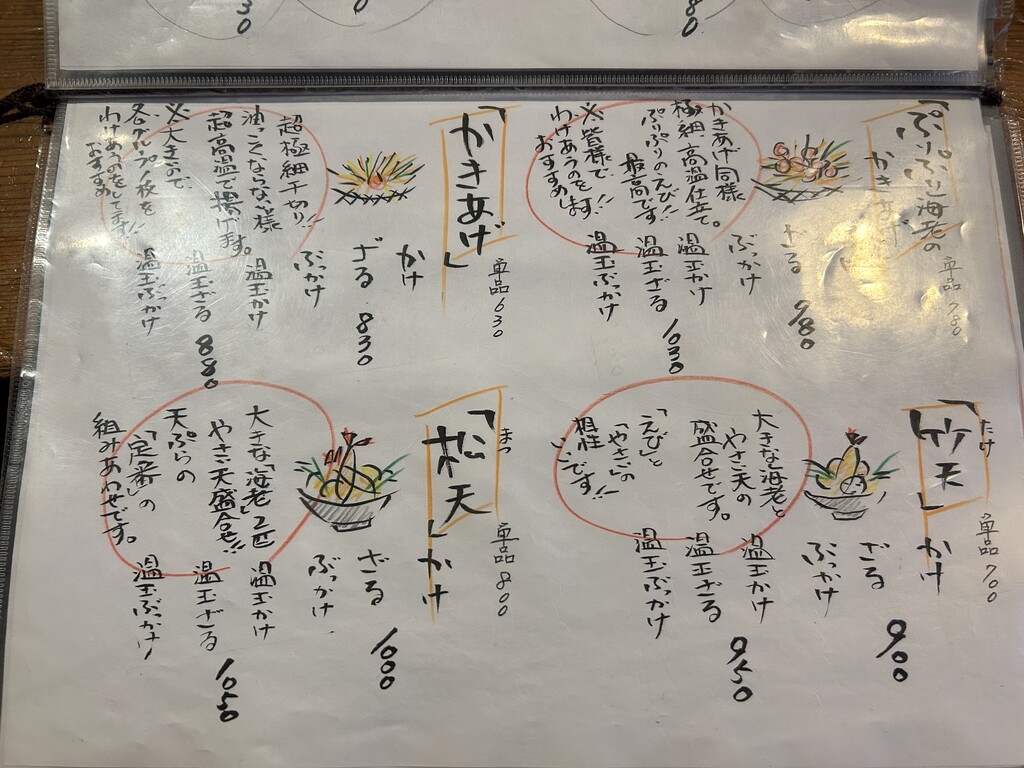 30
0
80
「ぷりぷり海老の
かきあげ
単品780
ざる
ぶっかけ
980
かきあげ同様
極細、高温仕立て。
ぷりぷりのえび!!
最高です
※皆様で、
わけあうのを
おすすめします!!
温玉かけ
温玉ざる
温玉ぶっかけ
1030
「かきあげ」
単品630
かけ
ざる
ぶっかけ
830
超極細千切り!!
油っこくならない様
超高温で揚げます。
※大きいので、
各グループ1枚を
わけあうのを
おすすめ
してます!!
温玉かけ
温玉ざる
温玉ぶっかけ
880
たけ
「竹天」
単品700
かけ
ざる
ぶっかけ
900
大きな海老と
やさい天の
盛合せです。
「えび」と
「やさい」の
相性
いいです!!
温玉かけ
温玉ざる
温玉ぶっかけ
950
まつ
「松天」
単品800
かけ
ざる
ぶっかけ
1000
大きな「海老」2匹
やさい天盛合せ!!
天ぷらの
「定番」の
組みあわせです。
温玉かけ
温玉ざる
温玉ぶっかけ
1050